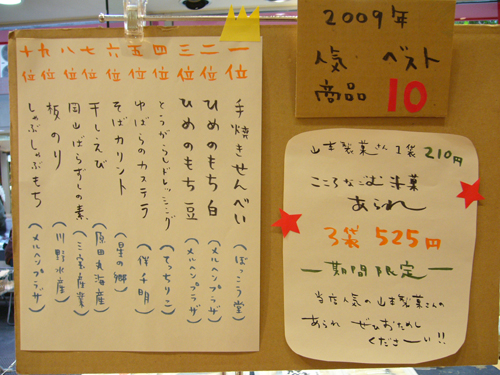 2009年
人気 ベスト
商品 10
一位 手焼きせんべい (ぼっこう堂)
二位 ひめのもち 白 (メルヘンプラザ)
三位 ひめのもち 豆 (メルヘンプラザ)
四位 とうがらしドレッシング (てっちりこ)
五位 ゆばらのカステラ (伴千明)
六位 そばカリント (星の郷)
七位 干しえび (原田丸海産)
八位 岡山ばらずしの素 (三宝産業)
九位 板のり (川野水産)
十位 しゃぶしゃぶもち (メルヘンプラザ)
山吉製菓さん 1袋 210円
こころなごむ 米菓
あられ
3袋 525円
期間限定
当店人気の山吉製菓さんの
あられ ぜひおためし
くださーい!!